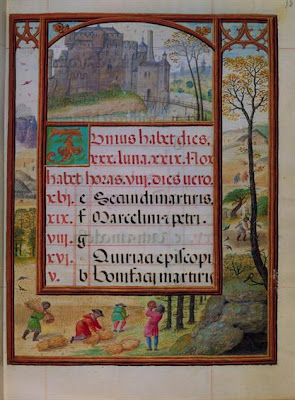 Iunius habet dies.
xxx. luna. xxix. Nox
habet horas. viij. dies vero.
xvj. e Secundi martiris.
xix. f Marcelini petri.
viij. g
xvj. Quiriaci episcopi
v. b Bonifacij martiris